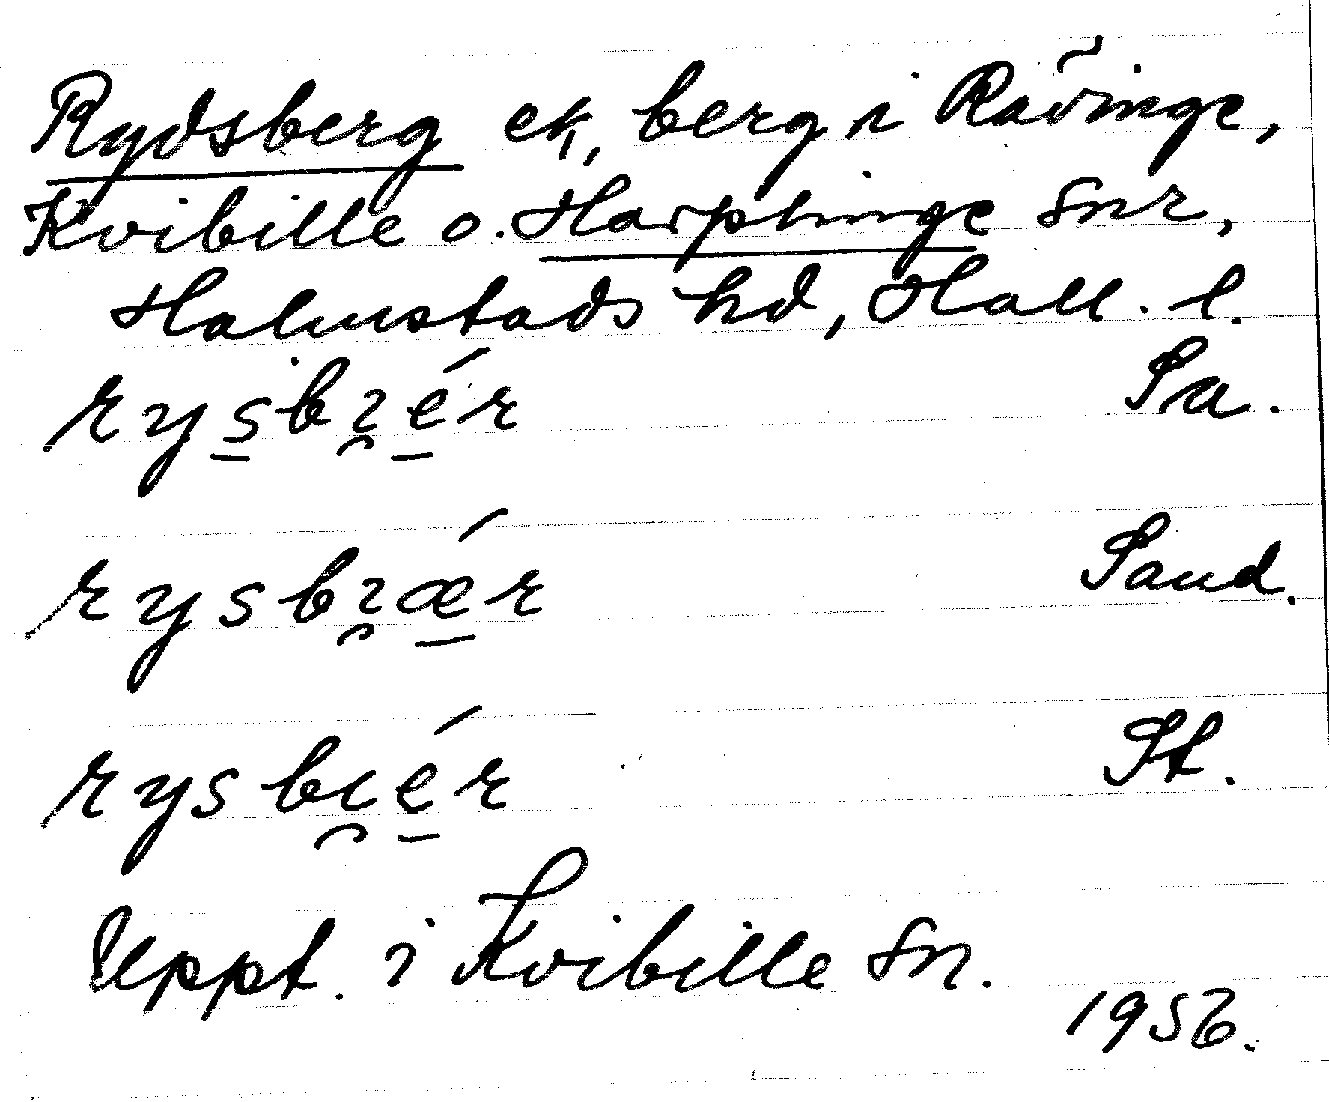 Rydsberg ek, berg i Rävinge,
Kvibille o. Harplinge snr,
Halmstads hd, Hall. l.
rysbɿ̯ér Sa.
rysbɿ̯ǽr Sand.
rysbı̯ér St.
Uppt. i Kvibille sn.
1956.